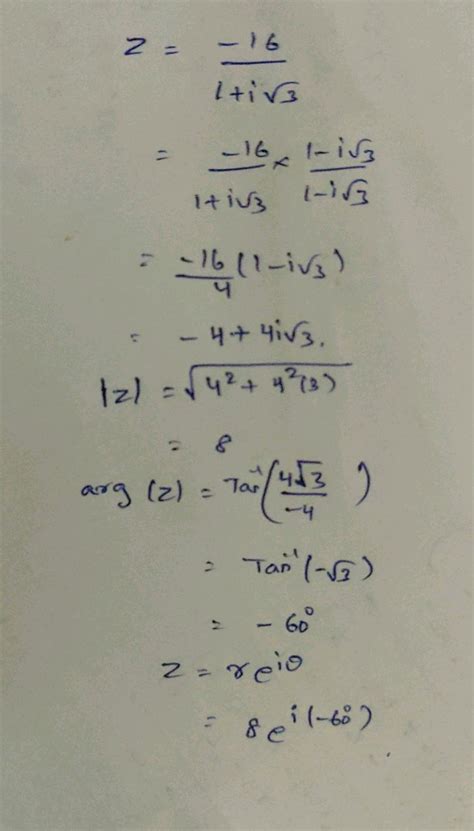 z = -16 / 1+i√3
= -16 / 1+i√3 × 1-i√3 / 1-i√3
= -16 / 4 (1-i√3)
= -4+4i√3.
|z| = √4²+4²(3)
= 8
arg (z) = Tan⁻¹(4√3 / -4)
= Tan⁻¹(-√3)
= -60°
z = re^iθ
= 8e^i(-60°)